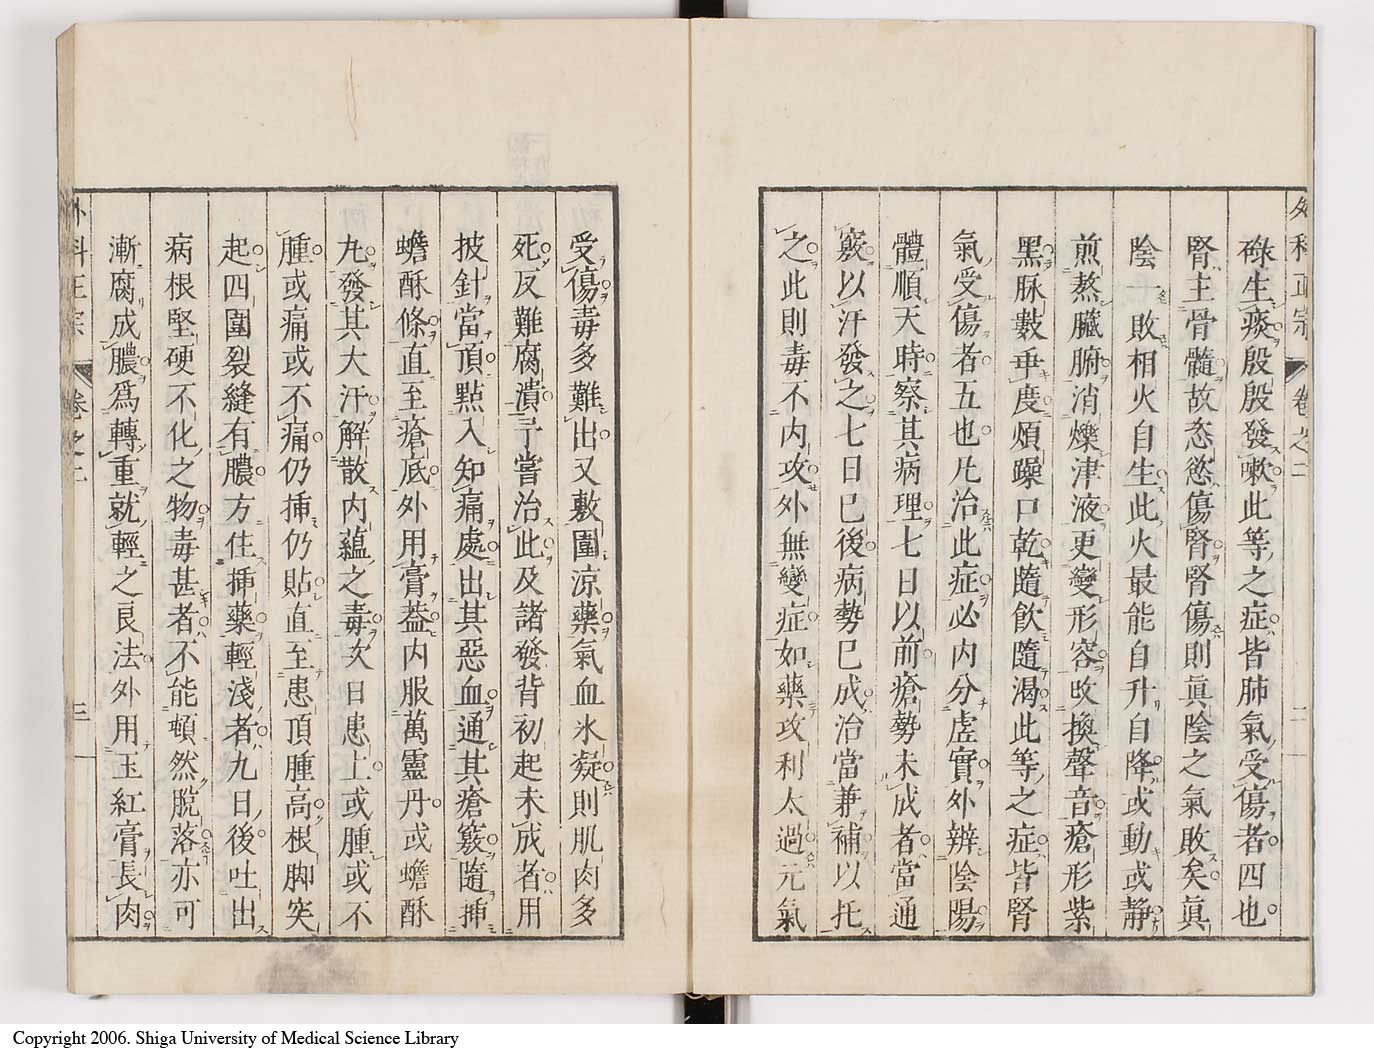 外科正宗 卷之二 二
祿生痰殷殷發嗽此等之症皆肺氣受傷者四也
腎主骨髓故恣慾傷腎腎傷則眞陰之氣敗矣眞
陰一敗相火自生此火最能自升自降或動或靜
煎熬臟腑消爍津液更變形容改換聲音瘡形紫
黑脉數乖度煩躁口乾隨飮隨渴此等之症皆腎
氣受傷者五也凢治此症必内分虗實外辨陰陽
體順天時察其病理七日以前瘡勢未成者當通
竅以汗發之七日已後病勢已成治當兼補以托
之此則毒不内攻外無變症如藥攻利太過元氣
受傷毒多難出又敷圍涼藥氣血氷凝則肌肉多
死反難腐潰予嘗治此及諸發背初起未成者用
披針當頂點入知痛處出其惡血通其瘡竅隨挿
蟾酥條直至瘡底外用膏葢内服萬靈丹或蟾酥
丸發其大汗解散内蘊之毒次日患上或腫或不
腫或痛或不痛仍挿仍貼直至患頂腫高根脚突
起四圍裂縫有膿方住挿藥輕淺者九日後吐出
病根堅硬不化之物毒甚者不能頓然脫落亦可
漸腐成膿爲轉重就輕之良法外用玉紅膏長肉
外科正宗 卷之二 三
Copyright 2006. Shiga University of Medical Science Library